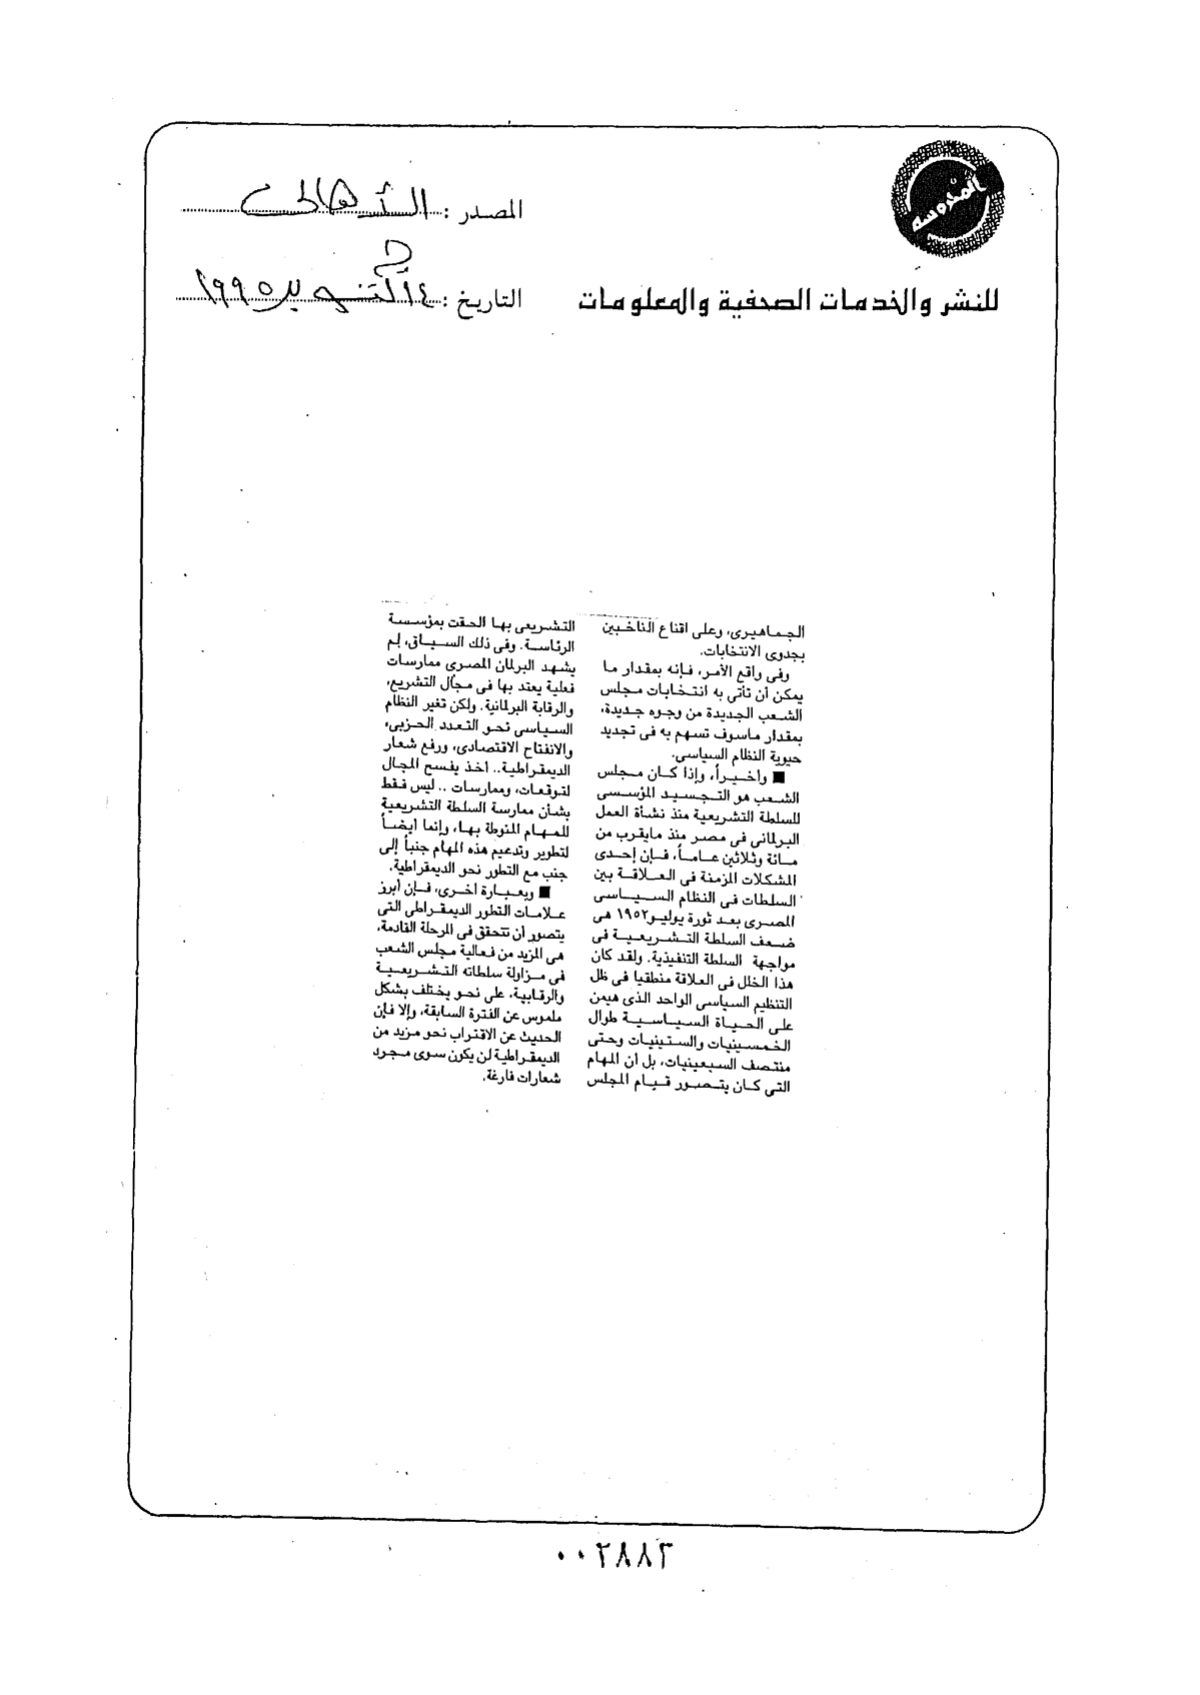 المحروسة
المصدر : الأهالى
للنشر والخدمات الصحفية والمعلومات
التاريخ : ١٤ أكتوبر ١٩٩٥
الجماهيرى، وعلى اقناع الناخبين
بجدوى الانتخابات.
وفى واقع الأمر، فإنه بمقدار ما
يمكن أن تأتى به انتخابات مجلس
الشعب الجديدة من وجوه جديدة،
بمقدار ماسوف تسهم به فى تجديد
حيوية النظام السياسى.
■ وأخيراً، وإذا كان مجلس
الشعب هو التجسيد المؤسسى
للسلطة التشريعية منذ نشأة العمل
البرلمانى فى مصر منذ مايقرب من
مائة وثلاثين عاماً، فإن إحدى
المشكلات المزمنة فى العلاقة بين
السلطات فى النظام السياسى
المصرى بعد ثورة يوليو١٩٥٢ هى
ضعف السلطة التشريعية فى
مواجهة السلطة التنفيذية. ولقد كان
هذا الخلل فى العلاقة منطقيا فى ظل
التنظيم السياسى الواحد الذى هيمن
على الحياة السياسية طوال
الخمسينيات والستينيات وحتى
منتصف السبعينيات، بل أن المهام
التى كان يتصور قيام المجلس
التشريعى بها الحقت بمؤسسة
الرئاسة. وفى ذلك السياق، لم
يشهد البرلمان المصرى ممارسات
فعلية يعتد بها فى مجال التشريع،
والرقابة البرلمانية. ولكن تغير النظام
السياسى نحو التعدد الحزبى،
والانفتاح الاقتصادى، ورفع شعار
الديمقراطية.. أخذ يفسح المجال
لتوقعات، وممارسات .. ليس فقط
بشأن ممارسة السلطة التشريعية
للمهام المنوطة بها، وإنما أيضاً
لتطوير وتدعيم هذه المهام جنباً إلى
جنب مع التطور نحو الديمقراطية.
■ وبعبارة أخرى، فإن أبرز
علامات التطور الديمقراطى التى
يتصور أن تتحقق فى المرحلة القادمة،
هى المزيد من فعالية مجلس الشعب
فى مزاولة سلطاته التشريعية
والرقابية، على نحو يختلف بشكل
ملموس عن الفترة السابقة، وإلا فإن
الحديث عن الاقتراب نحو مزيد من
الديمقراطية لن يكون سوى مجرد
شعارات فارغة.
٠٠٢٨٨٣